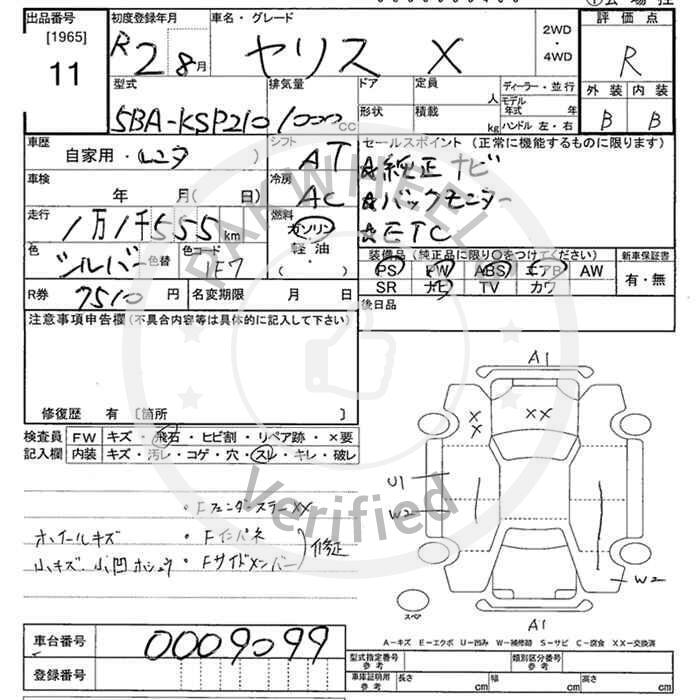 出品番号 初度登録年月 車名・グレード 2WD・4WD 評価点
[1965]
11 R2 8月 ヤリス X R
外装 内装
B B
型式 排気量 ドア 定員 人 ディーラー・並行
5BA-KSP210 1000cc 形状 積載 kg モデル年式 年
ハンドル 左・右
車歴 シフト セールスポイント (正常に機能するものに限ります)
自家用・レンタ( ) AT ☆純正ナビ
車検 冷房 ☆バックモニター
年 月(日) AC ☆ETC
走行 燃料
1万1千555km ガソリン
色 色替 色コード 軽油
シルバー 1F7 ・( )
装備品 (純正品に限り○をつけてください) 新車保証書
PS PW ABS エアB AW 有・無
SR ナビ TV カワ
R券 7510円 名変期限 月 日 後日品
注意事項申告欄(不具合内容等は具体的に記入して下さい)
修復歴 有 〔箇所 〕
検査員記入欄 FW キズ・飛石・ヒビ割・リペア跡・×要
内装 キズ・汚レ・コゲ・穴・スレ・キレ・破レ
・Fフェンダ・ステーXX
ホイールキズ ・Fインパネ
小キズ、小凹ホシュウ ・Fサイドメンバー 修正
CARWHEEL
Verified
A1
X
X
XX
U1
W2
W2
スペア
A1
A-キズ E-エクボ U-凹み W-補修跡 S-サビ C-腐食 XX-交換済
車台番号 0009099
登録番号
型式指定番号 参考 類別区分番号 参考
車庫証明用 参考 長さ cm 幅 cm 高さ cm